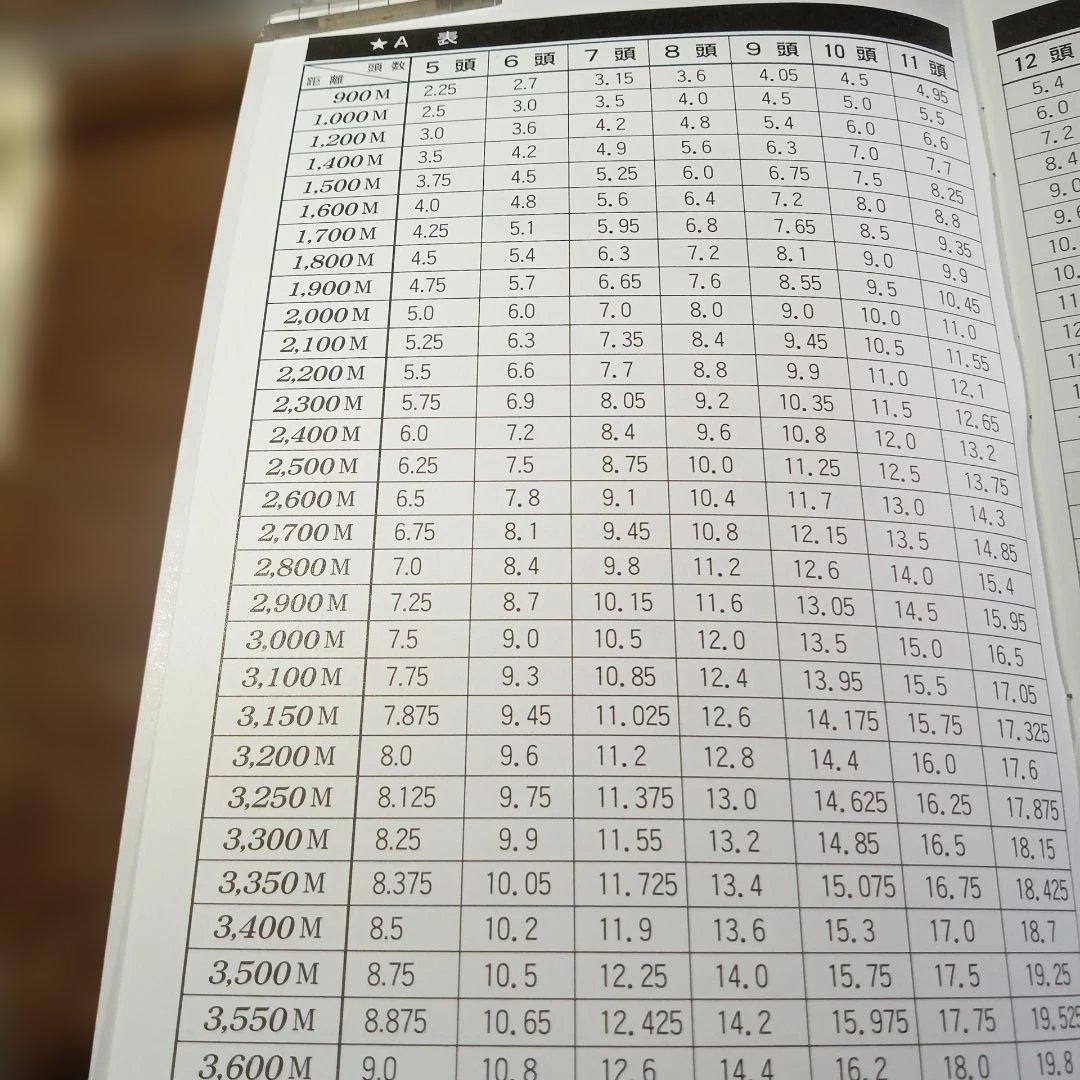 ★A 表
頭数 距離 5頭 6頭 7頭 8頭 9頭 10頭 11頭 12頭
900M 2.25 2.7 3.15 3.6 4.05 4.5 4.95 5.4
1,000M 2.5 3.0 3.5 4.0 4.5 5.0 5.5 6.0
1,200M 3.0 3.6 4.2 4.8 5.4 6.0 6.6 7.2
1,400M 3.5 4.2 4.9 5.6 6.3 7.0 7.7 8.4
1,500M 3.75 4.5 5.25 6.0 6.75 7.5 8.25 9.0
1,600M 4.0 4.8 5.6 6.4 7.2 8.0 8.8
1,700M 4.25 5.1 5.95 6.8 7.65 8.5 9.35 10.
1,800M 4.5 5.4 6.3 7.2 8.1 9.0 9.9 10.
1,900M 4.75 5.7 6.65 7.6 8.55 9.5 10.45 11
2,000M 5.0 6.0 7.0 8.0 9.0 10.0 11.0 12
2,100M 5.25 6.3 7.35 8.4 9.45 10.5 11.55
2,200M 5.5 6.6 7.7 8.8 9.9 11.0 12.1
2,300M 5.75 6.9 8.05 9.2 10.35 11.5 12.65
2,400M 6.0 7.2 8.4 9.6 10.8 12.0 13.2
2,500M 6.25 7.5 8.75 10.0 11.25 12.5 13.75
2,600M 6.5 7.8 9.1 10.4 11.7 13.0 14.3
2,700M 6.75 8.1 9.45 10.8 12.15 13.5 14.85
2,800M 7.0 8.4 9.8 11.2 12.6 14.0 15.4
2,900M 7.25 8.7 10.15 11.6 13.05 14.5 15.95
3,000M 7.5 9.0 10.5 12.0 13.5 15.0 16.5
3,100M 7.75 9.3 10.85 12.4 13.95 15.5 17.05
3,150M 7.875 9.45 11.025 12.6 14.175 15.75 17.325
3,200M 8.0 9.6 11.2 12.8 14.4 16.0 17.6
3,250M 8.125 9.75 11.375 13.0 14.625 16.25 17.875
3,300M 8.25 9.9 11.55 13.2 14.85 16.5 18.15
3,350M 8.375 10.05 11.725 13.4 15.075 16.75 18.425
3,400M 8.5 10.2 11.9 13.6 15.3 17.0 18.7
3,500M 8.75 10.5 12.25 14.0 15.75 17.5 19.25
3,550M 8.875 10.65 12.425 14.2 15.975 17.75 19.525
3,600M 9.0 10.8 12.6 14.4 16.2 18.0 19.8